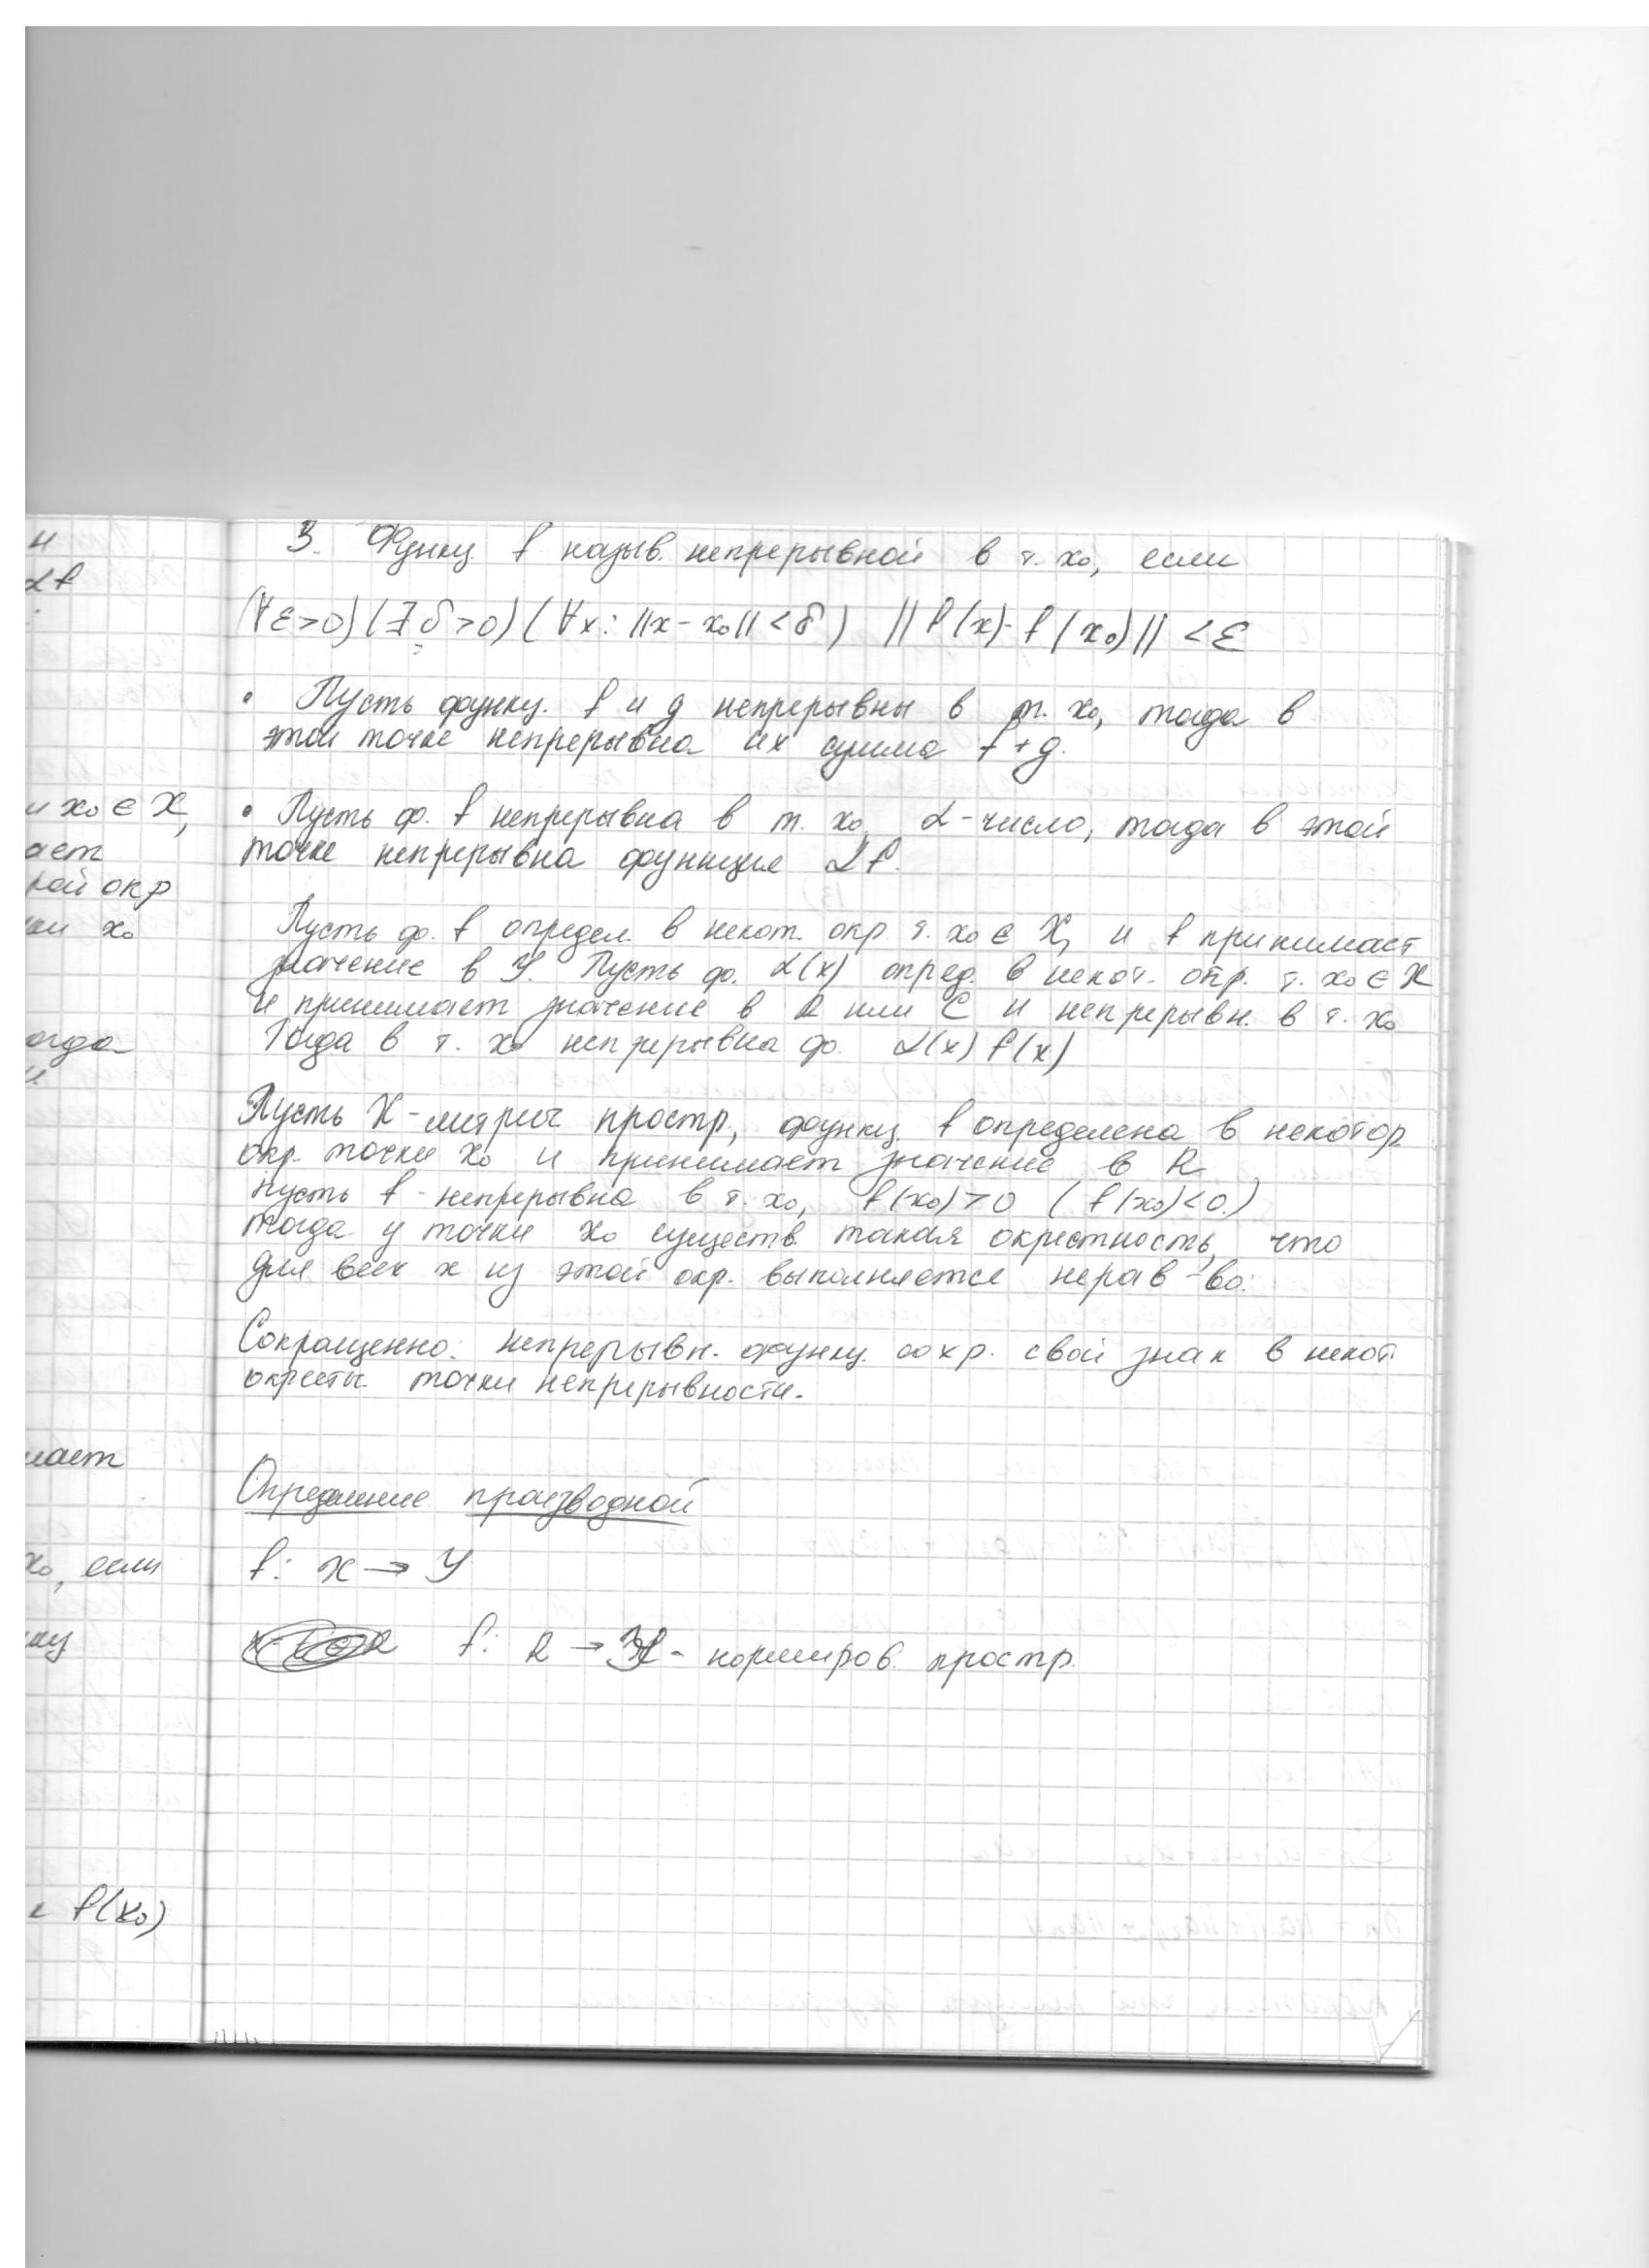 и
αf
:
и x₀ ∈ X,
ает
рой окр
ки x₀
огда
мает
x₀, если
f(x₀)
3. Функц. f назыв. непрерывной в т. x₀, если
(∀ε>0)(∃δ>0)(∀x: ||x-x₀||<δ) ||f(x)-f(x₀)||<ε
• Пусть функц. f и g непрерывны в т. x₀, тогда в
этой точке непрерывна их сумма f+g.
• Пусть ф. f непрерывна в т. x₀, α-число, тогда в этой
точке непрерывна функция αf.
Пусть ф. f определ. в некот. окр. т. x₀ ∈ X, и f принимает
значение в Y. Пусть ф. α(x) опред. в некот. окр. т. x₀ ∈ X
и принимает значение в R или C и непрерывн. в т. x₀
Тогда в т. x₀ непрерывна ф. α(x)f(x)
Пусть X-метрич простр, функц. f определена в некотор
окр. точки x₀ и принимает значение в R
пусть f - непрерывна в т. x₀, f(x₀)>0 (f(x₀)<0.)
тогда у точки x₀ существ. такая окрестность, что
для всех x из этой окр. выполняется нерав-во:
Сокращенно: непрерывн. функц. сохр. свой знак в некот.
окрестн. точки непрерывности.
Определение производной
f: X → Y
f: R → Y - нормиров. простр.